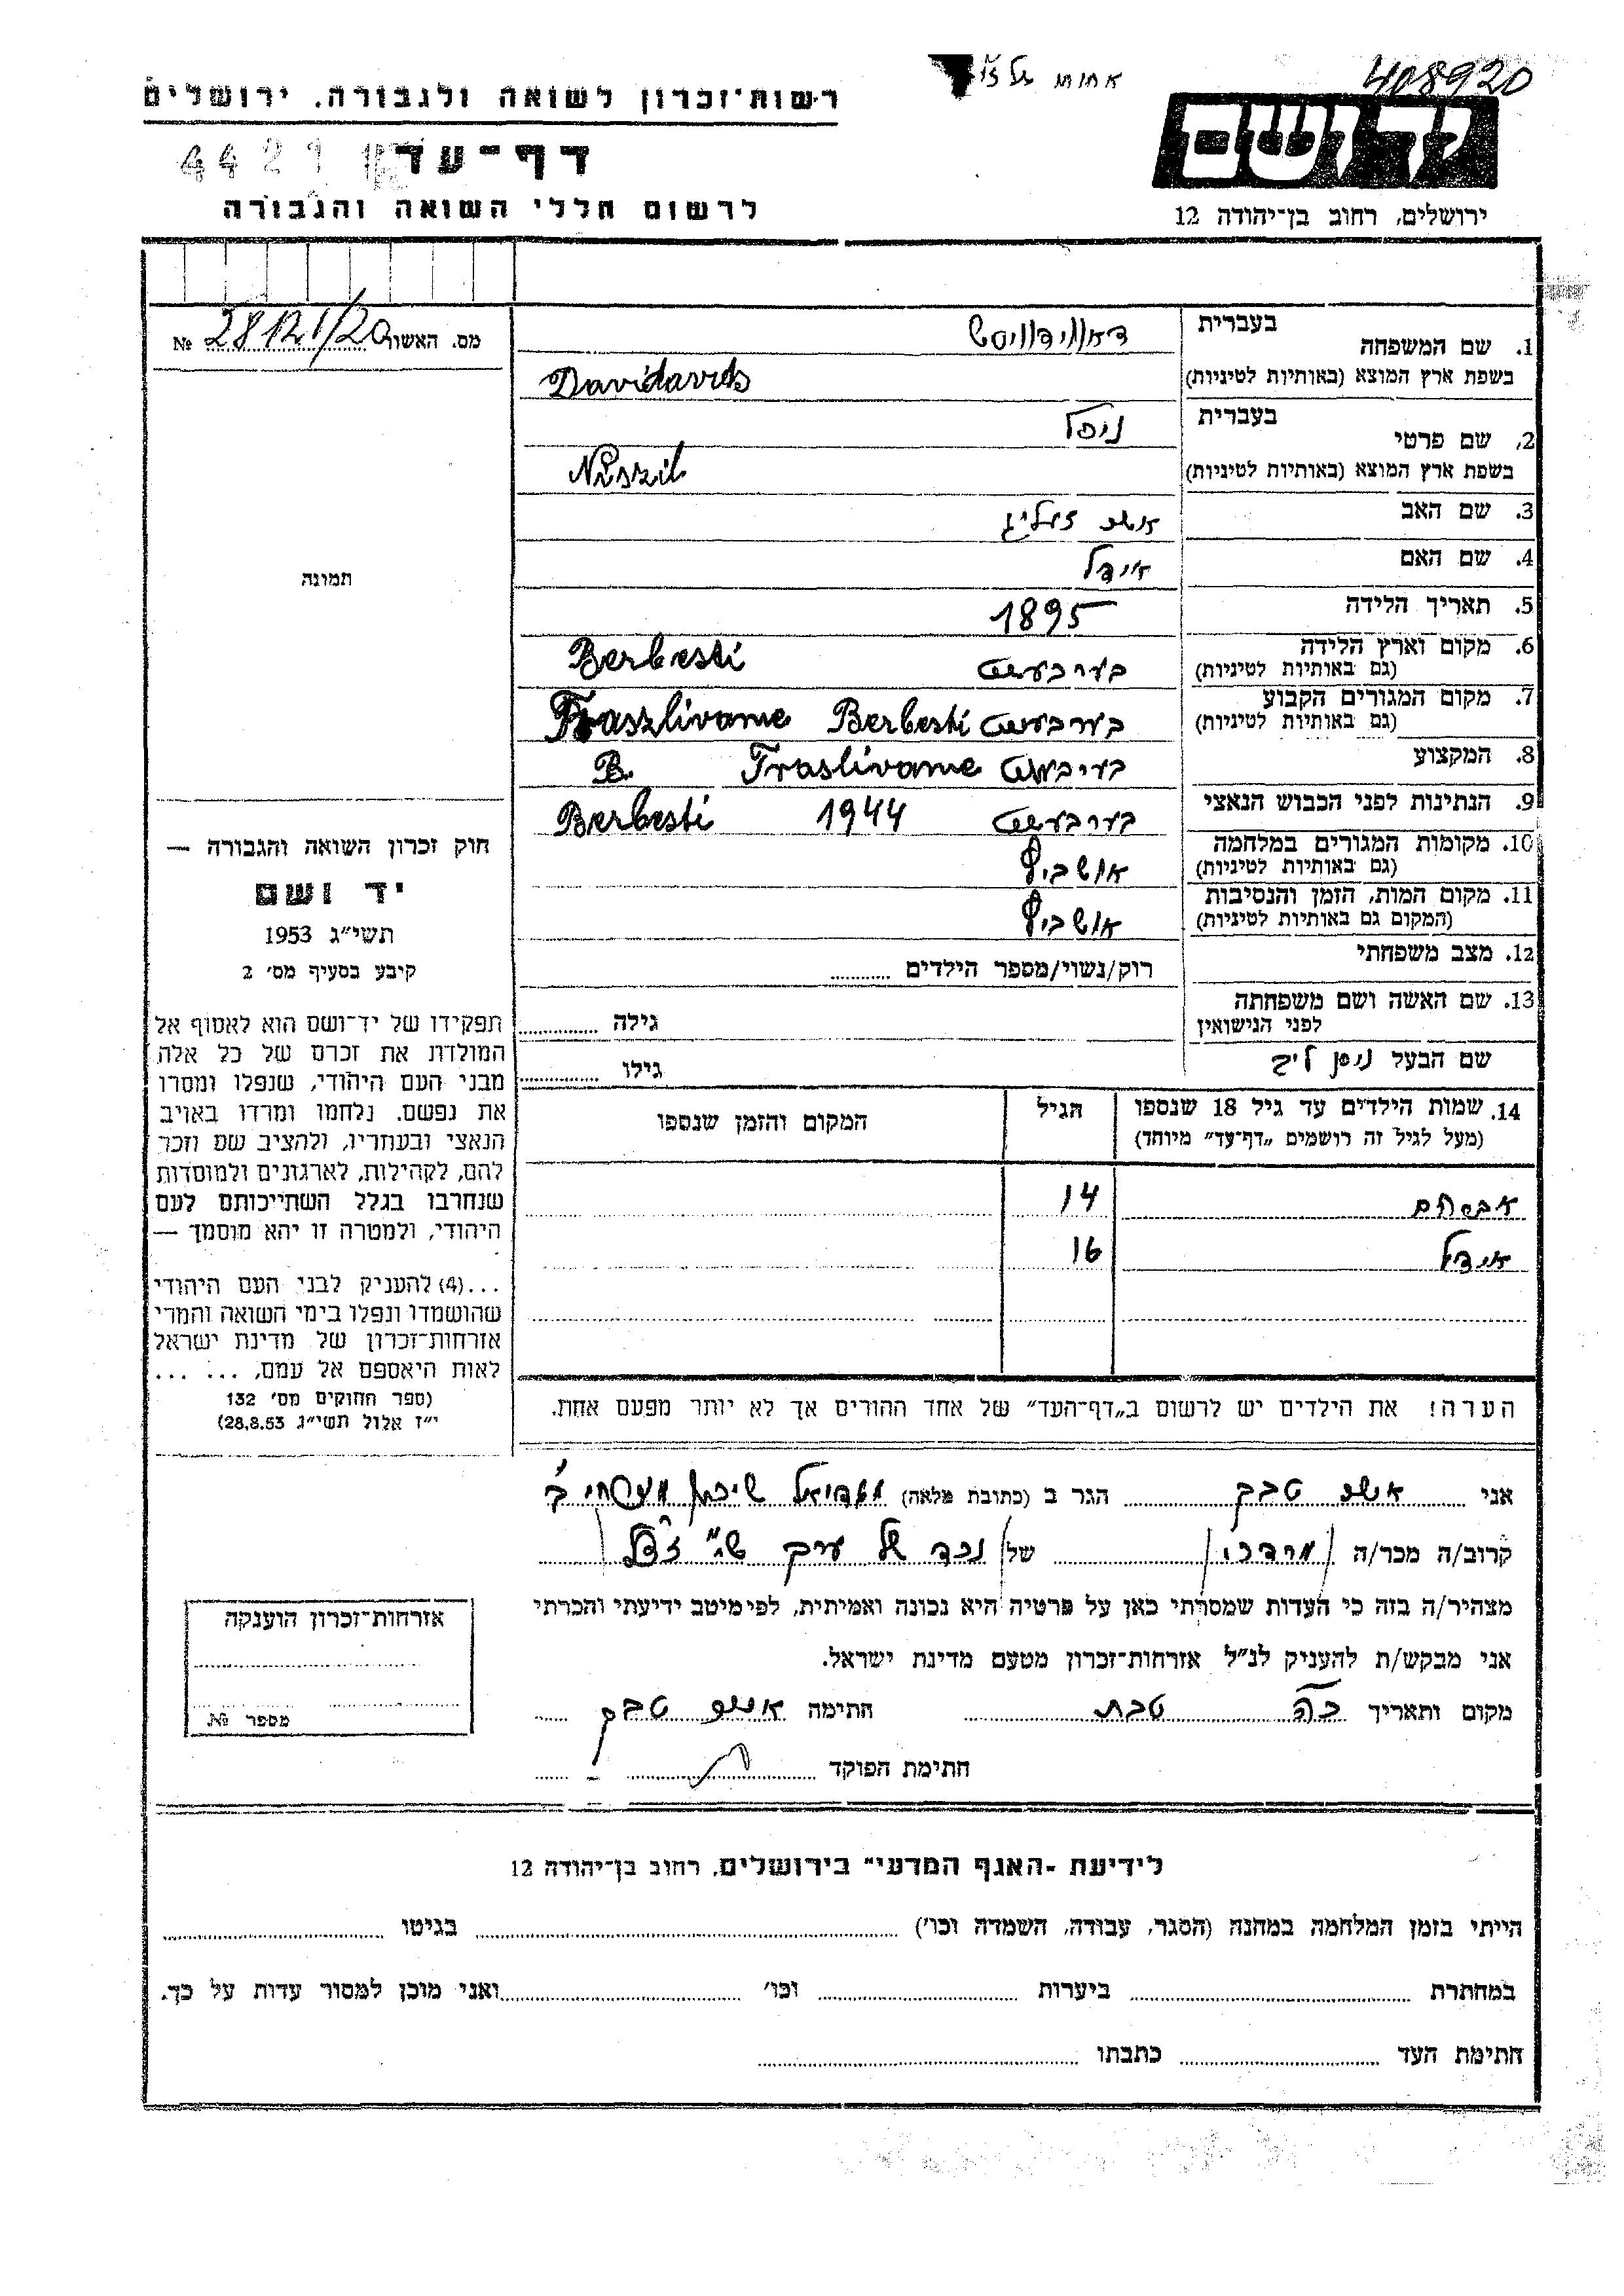 408920
אחות של
רשות־זכרון לשואה ולגבורה, ירושלים
יד ושם
דף־עד
4421
לרשום חללי השואה והגבורה
ירושלים, רחוב בן־יהודה 12
מס. האשור № 28121/20
1. שם המשפחה
בעברית
דאווידוויטש
בשפת ארץ המוצא (באותיות לטיניות)
Davidavids
2. שם פרטי
בעברית
בשפת ארץ המוצא (באותיות לטיניות)
3. שם האב
אשר זעליג
4. שם האם
אידל
5. תאריך הלידה
1895
6. מקום וארץ הלידה
(גם באותיות לטיניות)
בערבעשט Berbesti
7. מקום המגורים הקבוע
(גם באותיות לטיניות)
בערבעשט Berbesti Fraszlivanie
8. המקצוע
בערבעשט Fraslivanie B.
9. הנתינות לפני הכבוש הנאצי
בערבעשט 1944 Berbesti
10. מקומות המגורים במלחמה
(גם באותיות לטיניות)
אושביץ
11. מקום המות, הזמן והנסיבות
(המקום גם באותיות לטיניות)
אושביץ
12. מצב משפחתי
רוק/נשוי/מספר הילדים
13. שם האשה ושם משפחתה
לפני הנישואין
גילה
שם הבעל ניסן ליב
גילו
14. שמות הילדים עד גיל 18 שנספו
(מעל לגיל זה רושמים „דף־עד” מיוחד)
הגיל
המקום והזמן שנספו
אברהם 14
אידל 16
הערה! את הילדים יש לרשום ב„דף־העד” של אחד ההורים אך לא יותר מפעם אחת.
תמונה
חוק זכרון השואה והגבורה —
יד ושם
תשי״ג 1953
קיבע בסעיף מס׳ 2
תפקידו של יד־ושם הוא לאסוף אל
המולדת את זכרם של כל אלה
מבני העם היהודי, שנפלו ומסרו
את נפשם. נלחמו ומרדו באויב
הנאצי ובעוזריו, ולהציב שם וזכר
להם, לקהילות, לארגונים ולמוסדות
שנחרבו בגלל השתייכותם לעם
היהודי, ולמטרה זו יהא מוסמך —
...(4) להעניק לבני העם היהודי
שהושמדו ונפלו בימי השואה והמרי
אזרחות־זכרון של מדינת ישראל
לאות היאספם אל עמם, ... ...
(ספר החוקים מס׳ 132
י״ז אלול תשי״ג 28.8.53)
אני אשר טבק הגר ב (כתובת מלאה) שיכון מזרחי ב׳
קרוב/ה מכר/ה של נכד של
מצהיר/ה בזה כי העדות שמסרתי כאן על פרטיה היא נכונה ואמיתית, לפי מיטב ידיעתי והכרתי
אני מבקש/ת להעניק לנ״ל אזרחות־זכרון מטעם מדינת ישראל.
מקום ותאריך כ״ה טבת חתימה אשר טבק
חתימת הפוקד
אזרחות־זכרון הוענקה
מספר №.
לידיעת -האגף המדעי״ בירושלים, רחוב בן־יהודה 12
הייתי בזמן המלחמה במחנה (הסגר, עבודה, השמדה וכו׳) בגיטו
במחתרת ביערות וכו׳ ואני מוכן למסור עדות על כך.
חתימת העד כתבתו